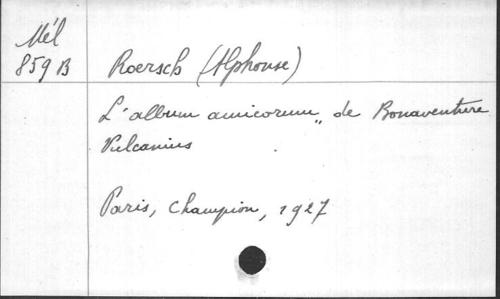 Mél
859 B
Roersch (Alphonse)
L'album amicorum„ de Bonaventure
Vulcanius
Paris, Champion, 1927